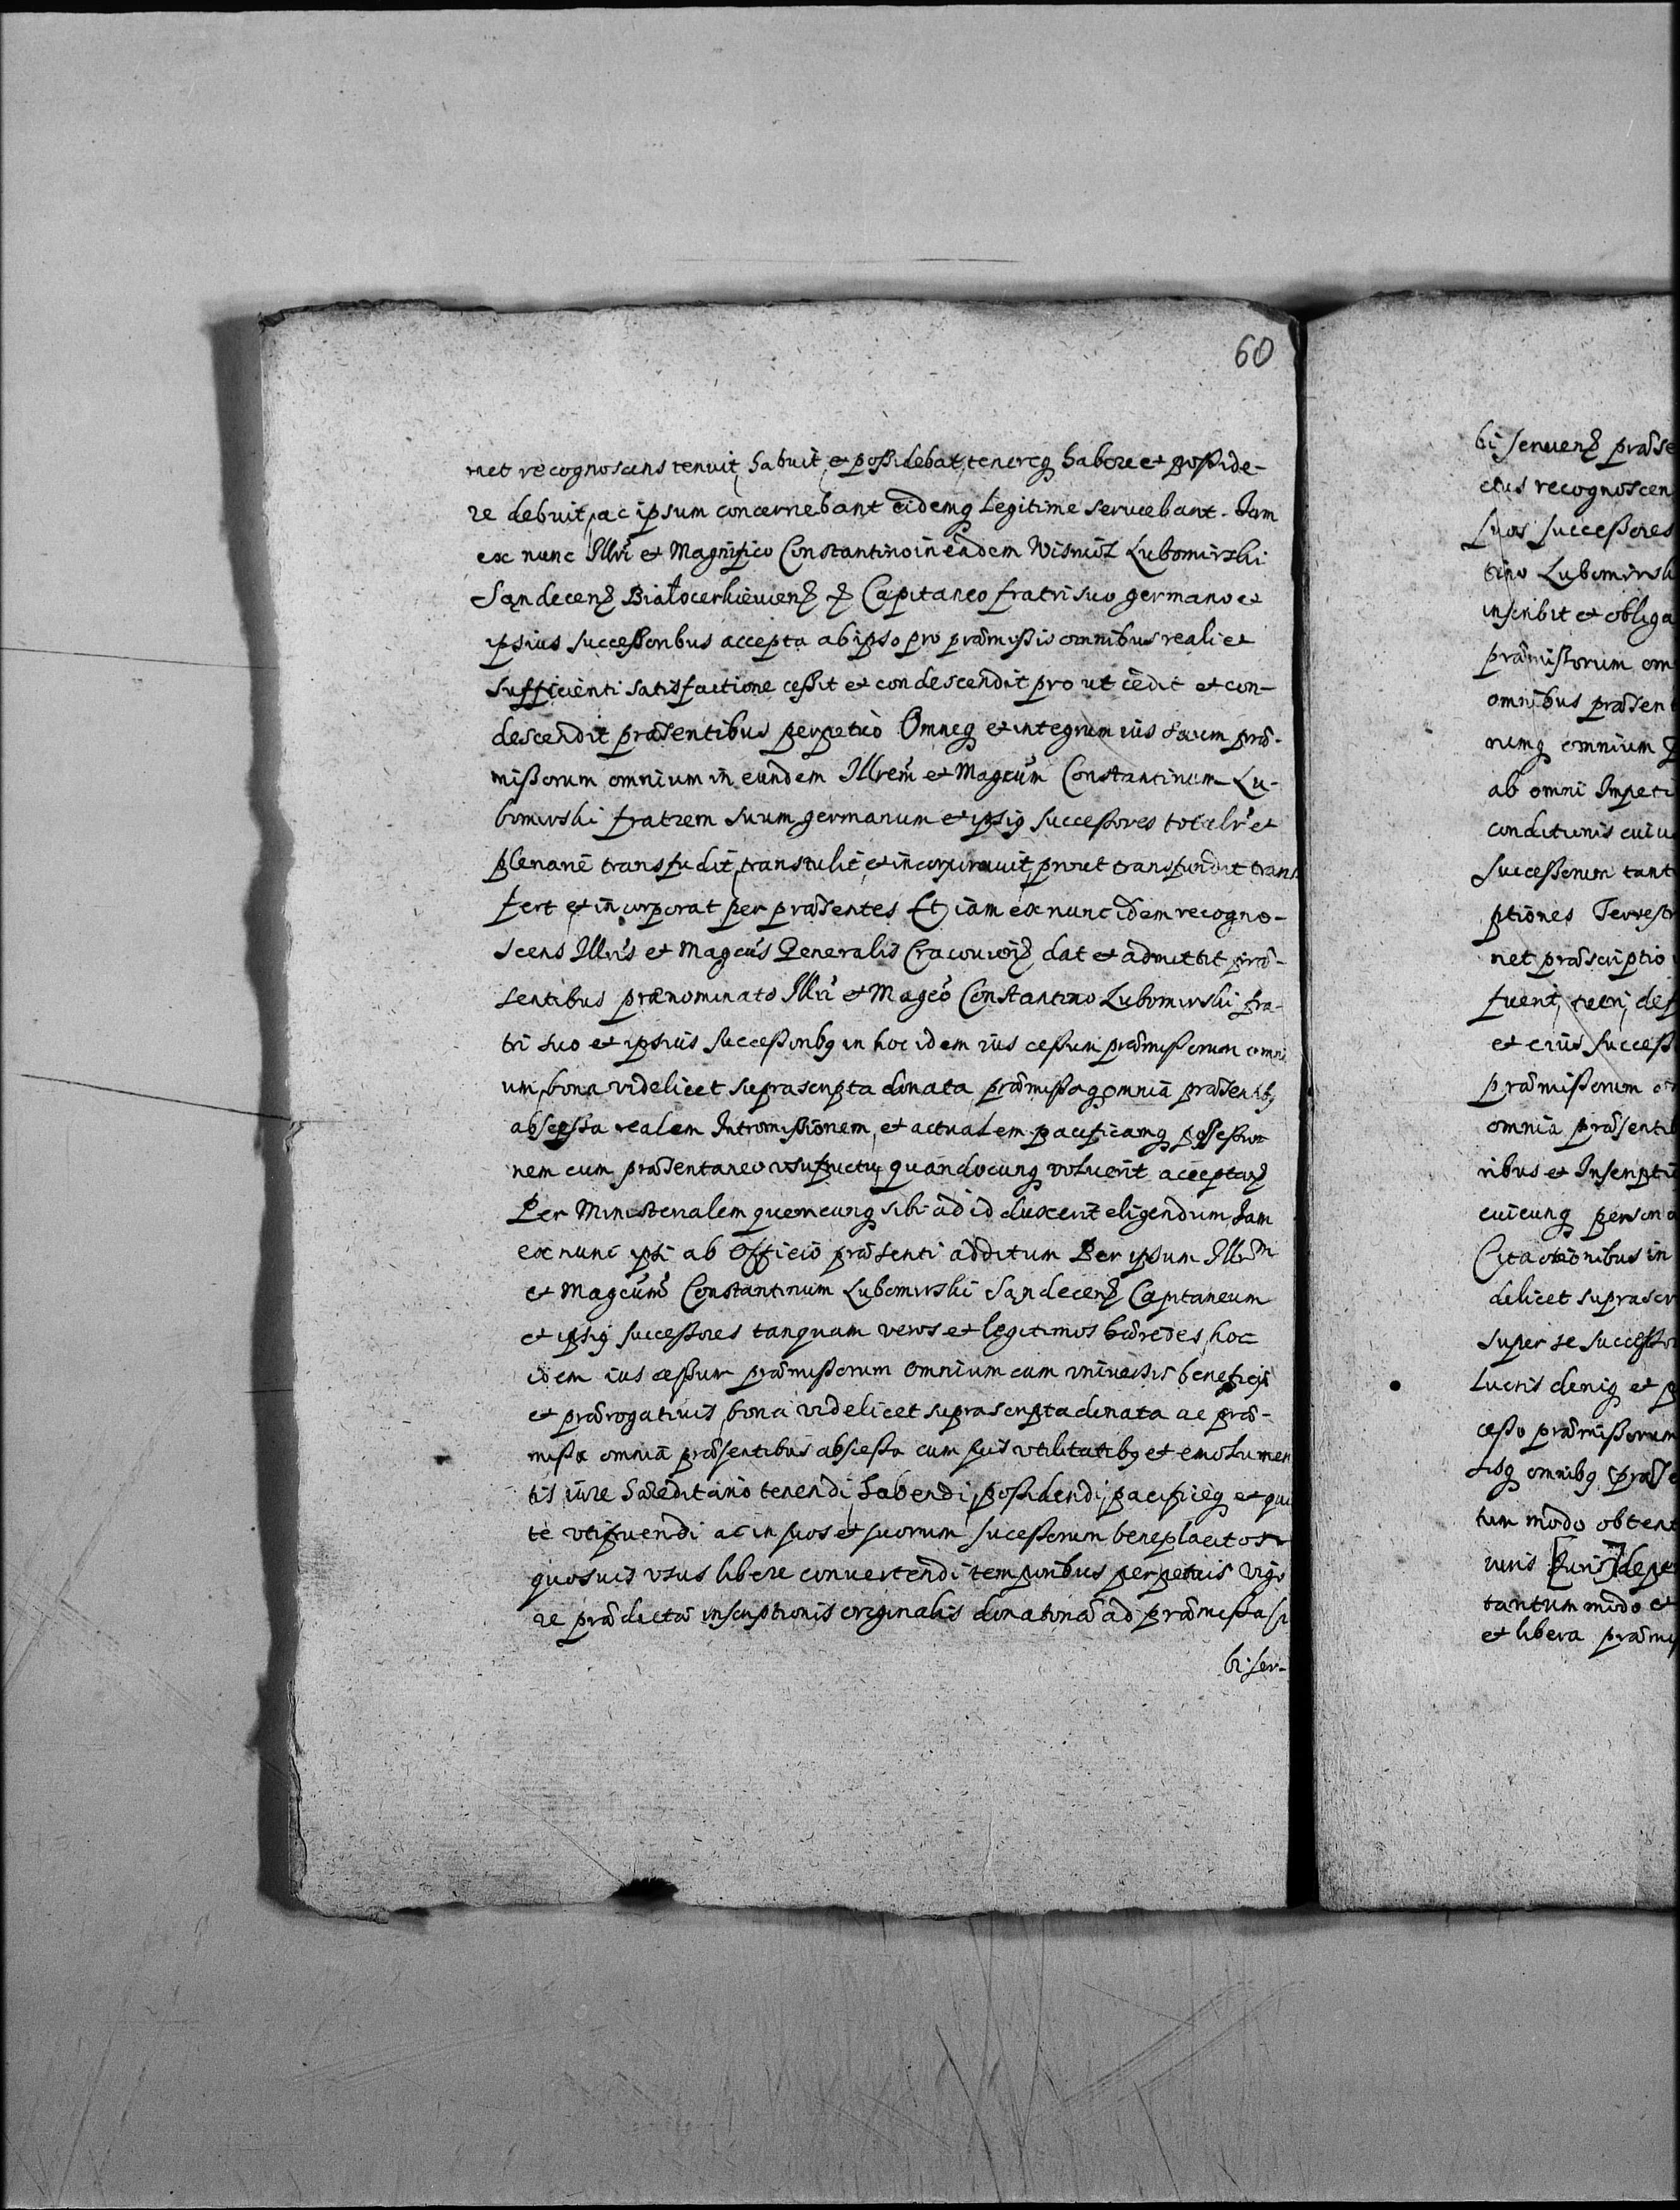 60
met recognoscens tenuit, habuit, et possidebat, tenereq habere et posside-
re debuit, ac ipsum concernebant eidemq legitime seruiebant. Iam
ex nunc Illri et Magnifico Constantino in eãdem Wisnicz Lubomirski
Sandecenß Białocerkieuienß Capitaneo fratri suo germano et
ipsius successoribus accepta ab ipso pro præmissis omnibus reali et
sufficienti satisfactione cessit et condescendit pro ut cedit et con-
descendit præsentibus perpetuò Omneq et integrum ius suum præ-
missorum omnium in eundem Illrem et Magcum Constantinum Lu-
bomirski fratrem suum germanum et ipsiq successores totalr et
plenariè transfudit, transtulit, et incorporauit, prout transfundit trans
fert et incorporat per præsentes Et iam ex nunc idem recogno-
scens Illris et Magcus Generalis Cracouienß dat et admittit præ-
sentibus prænominato Illri et Magco Constantino Lubomirski fra-
tri suo et ipsius successoribq in hoc idem ius cessum præmissorum omni
um, bona videlicet suprascripta donata præmissaq omnia præsentibq
abscessa realem Intromissionem, et actualem pacificamq possessio
nem cum præsentaneo vsufructu, quandocunq voluerit acceptanß
Per Ministerialem quemcunq sibi ad id duxerit eligendum, Iam
ex nunc ipsi ab Officio præsenti additum Per ipsum Illrem
et Magcum Constantinum Lubomirski Sandecenß Capitaneum
et ipsiq successores tanquam veros et legitimos hæredes, hoc
idem ius cessum præmissorum omnium cum vniuersis beneficijs
et prærogatiuis, bona videlicet suprascripta donata ac præ-
missa omnia præsentibus abscessa cum suis vtilitatibq et emolumen
tis iure hæreditario tenendi, habendi, possidendi, pacificeq et qui
te vtifruendi ac in suos et suorum successorum beneplacitos
quosuis vsus libere conuertendi temporibus perpetuis vigo
re prædictæ inscriptionis originalis donatoriæ ad præmissa si
bi ser-
bi seruienß præse
ctus recognoscen
suos successores
tino Lubomirsk
inscribit et obliga
præmissorum om
omnibus præsent
rumq omnium
ab omni Impeti
conditionis cuiu
successorum tant
ptiones Terrestr
net præscriptio
fuerit, def
et eius success
præmissorum
omnia præsentib
ribus et Inscripti
cuicunq persona
Citationibus in
delicet suprascr
super se successo
lucris deniq et p
cesso præmissorum
tisq omnibq præse
tum modo obtent
iuris [iuris] depe
tantum modo et
et libera præmis